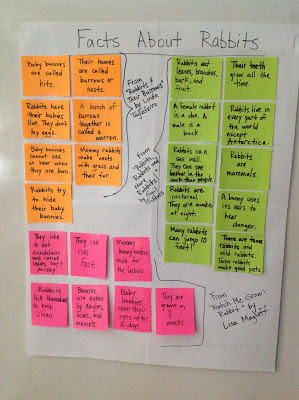 Facts About Rabbits
Baby bunnies
are called
kits.
Their homes
are called
burrows or
nests.
Rabbits have
their babies
live. They don't
lay eggs.
A bunch of
burrows
together is
called a
warren.
Baby bunnies
cannot see
or hear when
they are born.
Mommy rabbits
make nests
with grass and
their fur.
Rabbits try
to hide
their baby
bunnies.
From
"Rabbits &
Their Burrows"
by Linda
Rabbits eat
leaves, branches,
bark, and
fruit.
Their teeth
grow all the
time.
A female rabbit
is a doe. A
male is a
buck.
Rabbits live in
every part of
the world
except
Antarctica.
Rabbits can
see well.
They can see
better in the
dark than people.
Rabbits
are
mammals.
Rabbits are
nocturnal.
They are awake
at night.
A bunny uses
its ears to
hear
danger.
Many rabbits
can jump 10
feet!
There are tame
rabbits and
wild rabbits.
Tame rabbits
make good pets.
From
Rabbits,
Rabbits, and
More
Rabbits
by Gail
Gibbons
They like
to eat
dandelions
and carrot
leaves, hay,
parsley.
They can
run
fast
Mommy
bunnies make
milk for
the babies.
Rabbits
lick themselves
to keep
clean
Bunnies
are eaten by
eagles,
foxes, and
weasels.
Baby
bunnies
open their
eyes after
10 days
They are
grown in
8 weeks.
From
"Watch Me Grow
Rabbit" by
Lisa Magloff